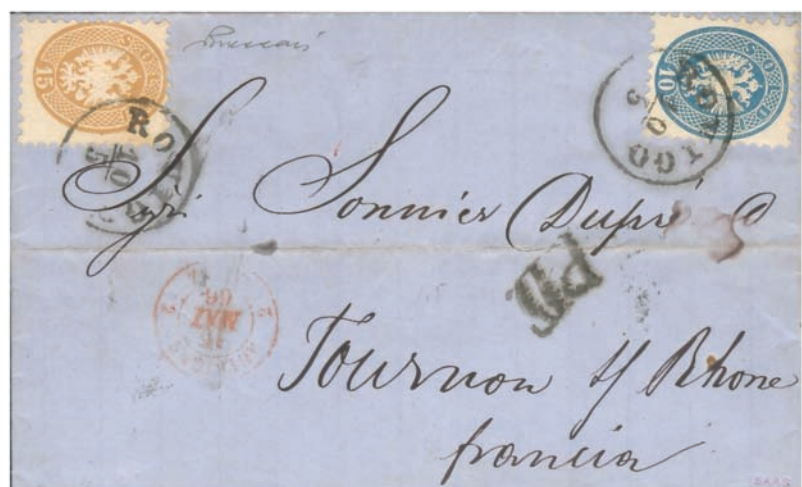 15 SOLDI
10 SOLDI
ROVIGO
10/5
ROVIGO
Sigri Sonnier Dupré
PD
MAI
66
Tournon s/ Rhone
francia